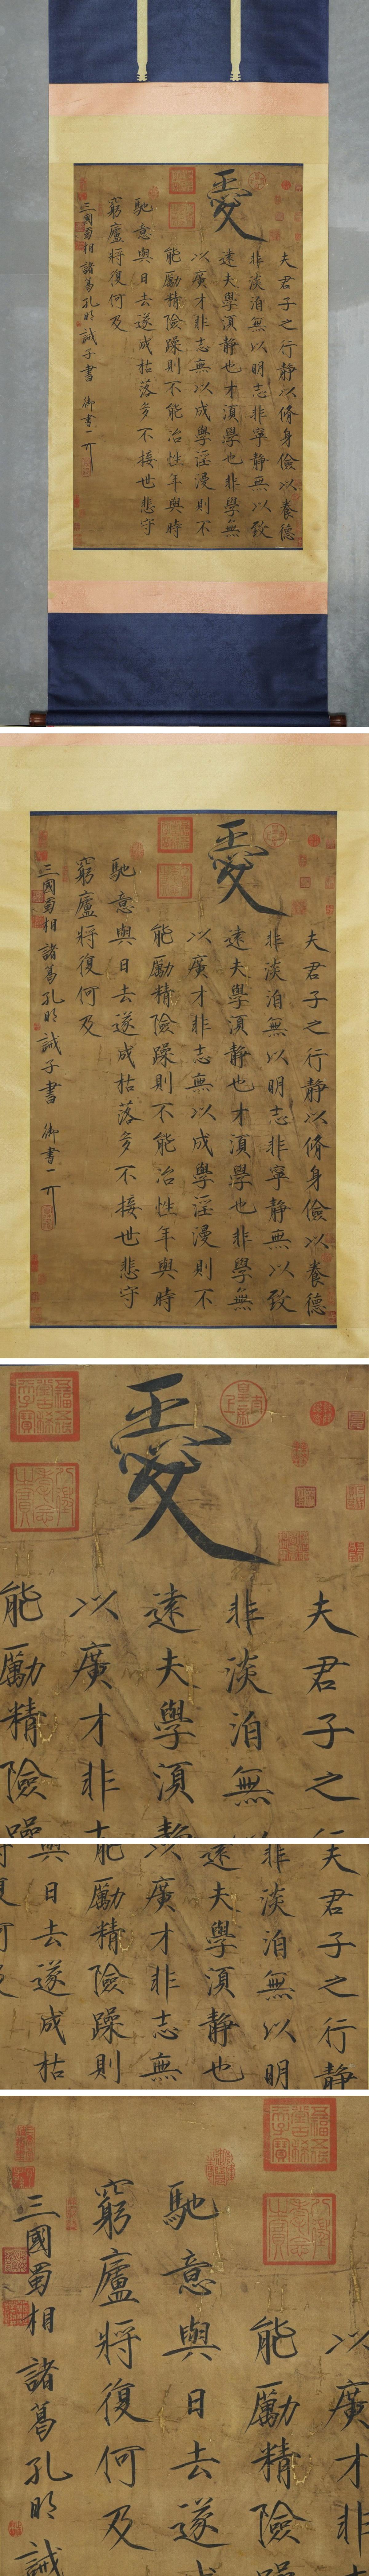 夫君子之行静以脩身儉以養德
非淡泊無以明志非寧静無以致
遠夫學湏静也才湏學也非學無
以廣才非志無以成學淫漫則不
能勵精險躁則不能治性年與時
馳意與日去遂成枯落多不接世悲守
窮廬將復何及
三國蜀相 諸葛孔明 誡子書 御書一
夫君子之行静以脩身儉以養德
非淡泊無以明志非寧静無以致
遠夫學湏静也才湏學也非學無
以廣才非志無以成學淫漫則不
能勵精險躁則不能治性年與時
馳意與日去遂成枯落多不接世悲守
窮廬將復何及
三國蜀相 諸葛孔明 誡子書 御書一
夫君子之
非淡泊無
遠夫學湏静
以廣才非
能勵精險躁
夫君子之行静
非淡泊無以明
遠夫學湏静也
以廣才非志無
能勵精險躁則
與日去遂成枯
以廣才非
能勵精險
馳意與日去遂
窮廬將復何及
三國蜀相 諸葛孔明 誡